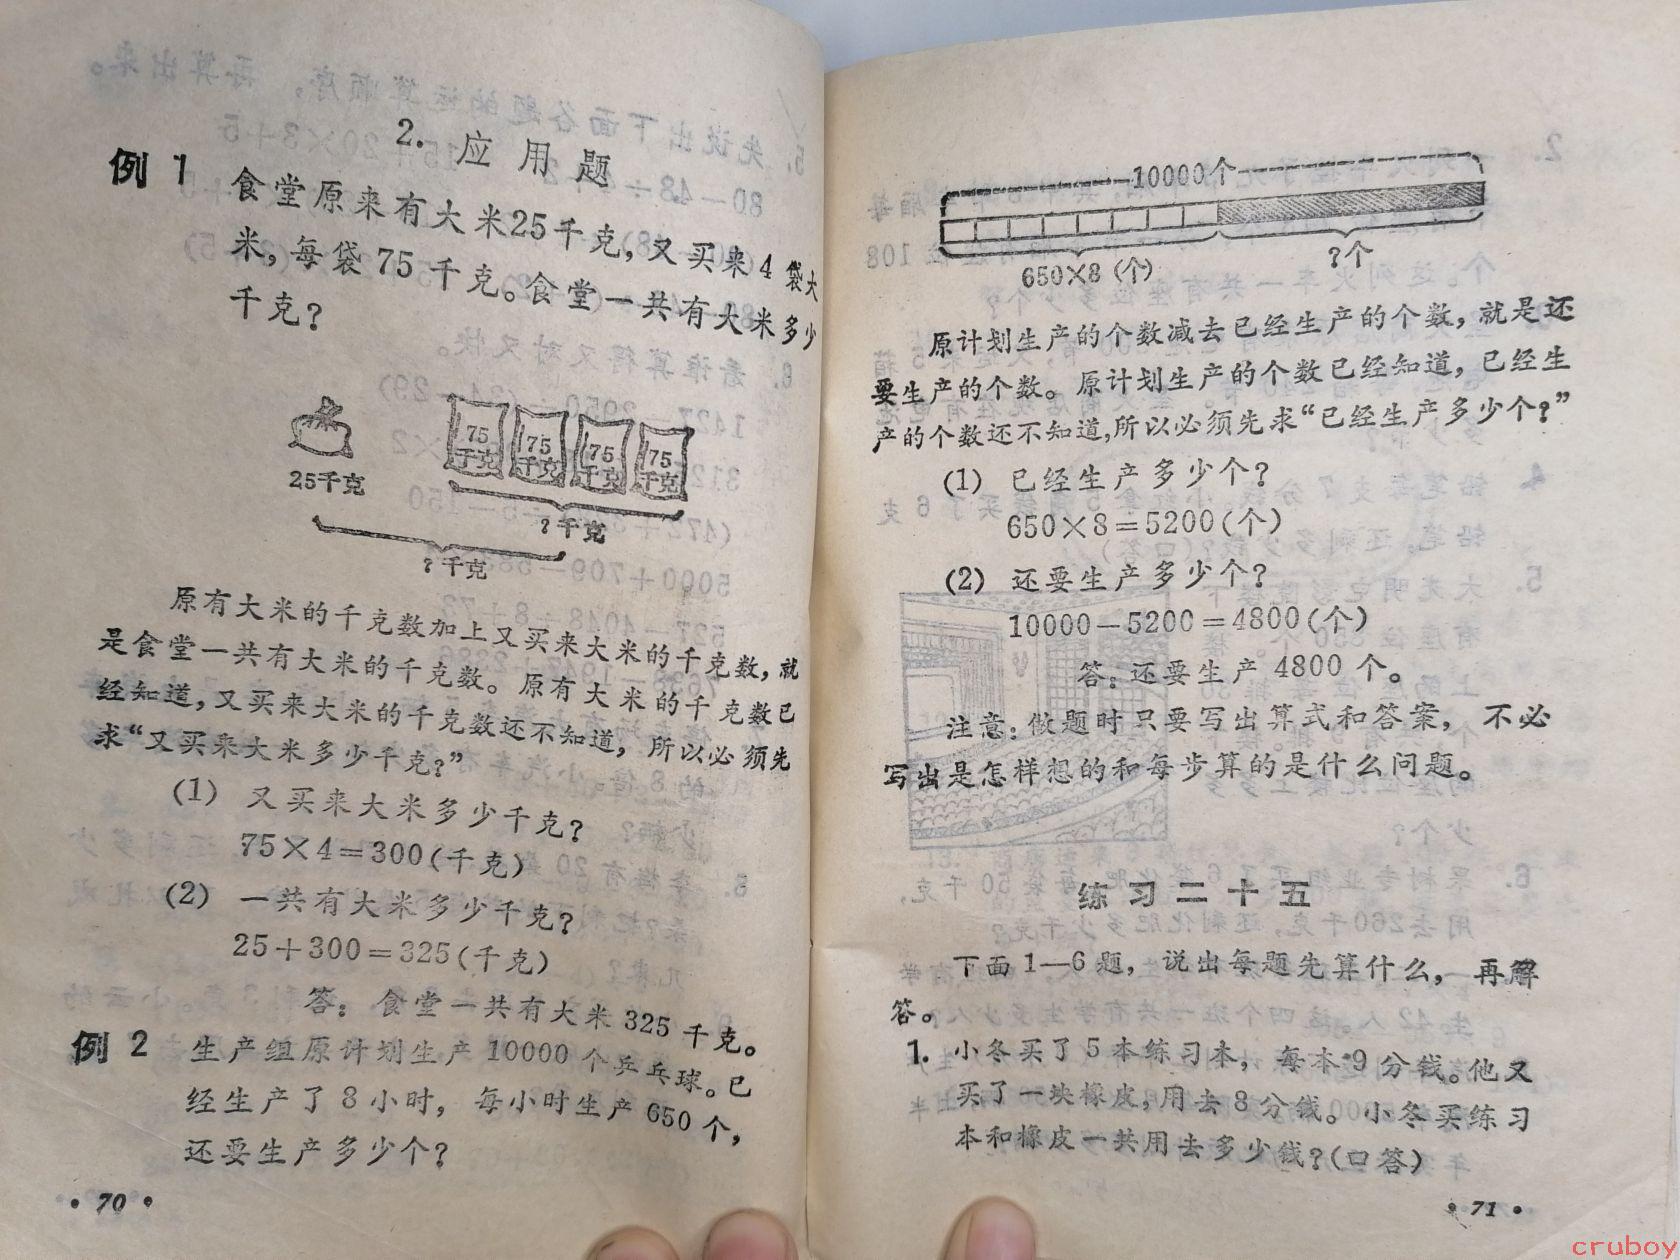 2. 应用题
例 1 食堂原来有大米25千克，又买来4袋大
米，每袋75千克。食堂一共有大米多少
千克？
75千克 75千克 75千克 75千克
25千克
？千克
？千克
原有大米的千克数加上又买来大米的千克数，就
是食堂一共有大米的千克数。原有大米的千克数已
经知道，又买来大米的千克数还不知道，所以必须先
求“又买来大米多少千克？”
(1) 又买来大米多少千克？
75×4＝300(千克)
(2) 一共有大米多少千克？
25＋300＝325(千克)
答：食堂一共有大米325千克。
例 2 生产组原计划生产10000个乒乓球。已
经生产了8小时，每小时生产650个，
还要生产多少个？
·70·
10000个
650×8(个)
？个
原计划生产的个数减去已经生产的个数，就是还
要生产的个数。原计划生产的个数已经知道，已经生
产的个数还不知道，所以必须先求“已经生产多少个？”
(1) 已经生产多少个？
650×8＝5200(个)
(2) 还要生产多少个？
10000－5200＝4800(个)
答：还要生产4800个。
注意：做题时只要写出算式和答案，不必
写出是怎样想的和每步算的是什么问题。
练习二十五
下面1—6题，说出每题先算什么，再解
答。
1. 小冬买了5本练习本，每本9分钱。他又
买了一块橡皮，用去8分钱。小冬买练习
本和橡皮一共用去多少钱？(口答)
·71·
cruboy